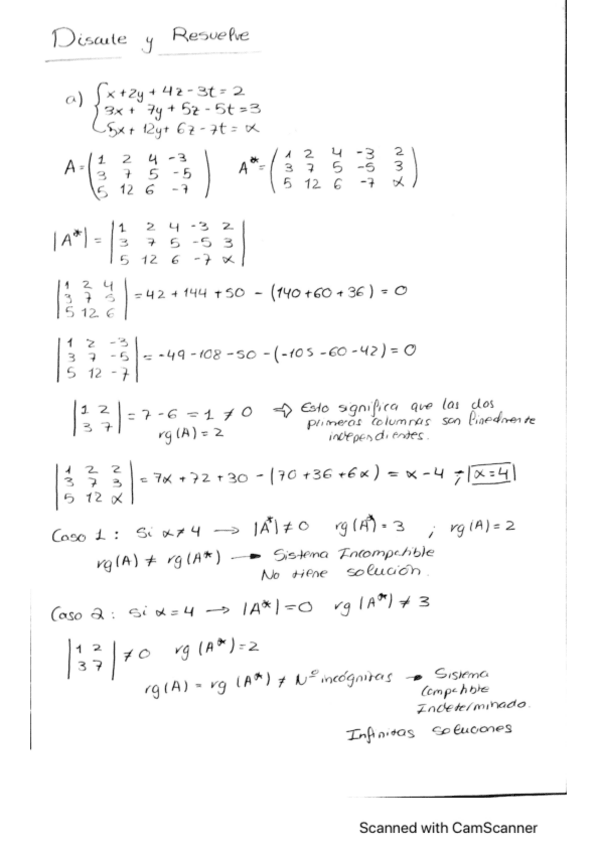 Discute y Resuelve
a) { x + 2y + 4z - 3t = 2
3x + 7y + 5z - 5t = 3
5x + 12y + 6z - 7t = α
A = ( 1 2 4 -3 A* = ( 1 2 4 -3 2
3 7 5 -5 ) 3 7 5 -5 3 )
5 12 6 -7 5 12 6 -7 α
|A*| = | 1 2 4 -3 2 |
3 7 5 -5 3
5 12 6 -7 α
| 1 2 4 |
3 7 5 = 42 + 144 + 50 - (140 + 60 + 36) = 0
5 12 6
| 1 2 -3 |
3 7 -5 = -49 - 108 - 50 - (-105 - 60 - 42) = 0
5 12 -7
| 1 2 | = 7 - 6 = 1 ≠ 0 ⇒ Esto significa que las dos
3 7 rg(A) = 2 primeras columnas son linealmente
independientes.
| 1 2 2 |
3 7 3 = 7α + 72 + 30 - (70 + 36 + 6α) = α - 4 ; α = 4
5 12 α
Caso 1 : Si α ≠ 4 → |A*| ≠ 0 rg(A*) = 3 ; rg(A) = 2
rg(A) ≠ rg(A*) → Sistema Incompatible
No tiene solución.
Caso 2 : Si α = 4 → |A*| = 0 rg(A*) ≠ 3
| 1 2 | ≠ 0 rg(A*) = 2
3 7
rg(A) = rg(A*) ≠ Nº incógnitas → Sistema
Compatible
Indeterminado.
Infinitas soluciones
Scanned with CamScanner